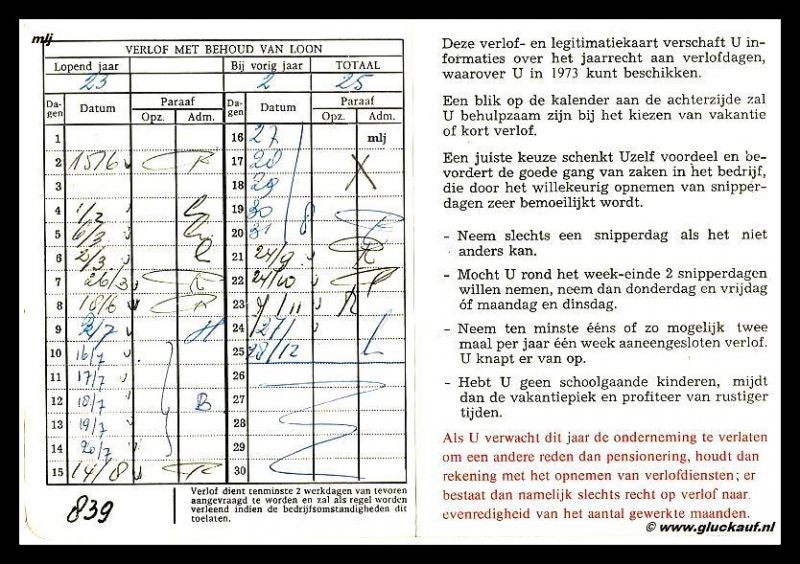 mlj
VERLOF MET BEHOUD VAN LOON
Lopend jaar Bij vorig jaar TOTAAL
23 2 25
Dagen Datum Paraaf Dagen Datum Paraaf
Opz. Adm. Opz. Adm.
1 16 27 mlj
2 15/6 17 28
3 18 29
4 1/2 19 30
5 6/3 20 31
6 21 24/9
7 26/3 22 24/10
8 18/6 23
9 2/7 24
10 16/7 25 28/12
11 17/7 26
12 18/7 27
13 19/7 28
14 20/7 29
15 14/8 30
839
Verlof dient tenminste 2 werkdagen van tevoren
aangevraagd te worden en zal als regel worden
verleend indien de bedrijfsomstandigheden dit
toelaten.
Deze verlof- en legitimatiekaart verschaft U in-
formaties over het jaarrecht aan verlofdagen,
waarover U in 1973 kunt beschikken.
Een blik op de kalender aan de achterzijde zal
U behulpzaam zijn bij het kiezen van vakantie
of kort verlof.
Een juiste keuze schenkt Uzelf voordeel en be-
vordert de goede gang van zaken in het bedrijf,
die door het willekeurig opnemen van snipper-
dagen zeer bemoeilijkt wordt.
- Neem slechts een snipperdag als het niet
anders kan.
- Mocht U rond het week-einde 2 snipperdagen
willen nemen, neem dan donderdag en vrijdag
óf maandag en dinsdag.
- Neem ten minste ééns of zo mogelijk twee
maal per jaar één week aaneengesloten verlof.
U knapt er van op.
- Hebt U geen schoolgaande kinderen, mijdt
dan de vakantiepiek en profiteer van rustiger
tijden.
Als U verwacht dit jaar de onderneming te verlaten
om een andere reden dan pensionering, houdt dan
rekening met het opnemen van verlofdiensten; er
bestaat dan namelijk slechts recht op verlof naar
evenredigheid van het aantal gewerkte maanden.
© www.gluckauf.nl